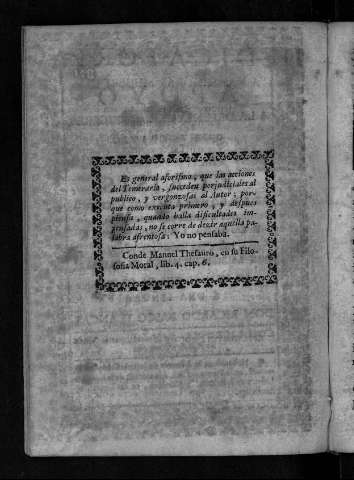 Es general aforismo, que las acciones
del Temerario, succeden perjudiciales al
publico, y vergonzosas al Autor; por-
que como executa primero, y despues
piensa, quando halla dificultades im-
pensadas, no se corre de decir aquella pa-
labra afrentosa: Yo no pensaba.
Conde Manuel Thesauro, en su Filo-
sofia Moral, lib. 4. cap. 6.